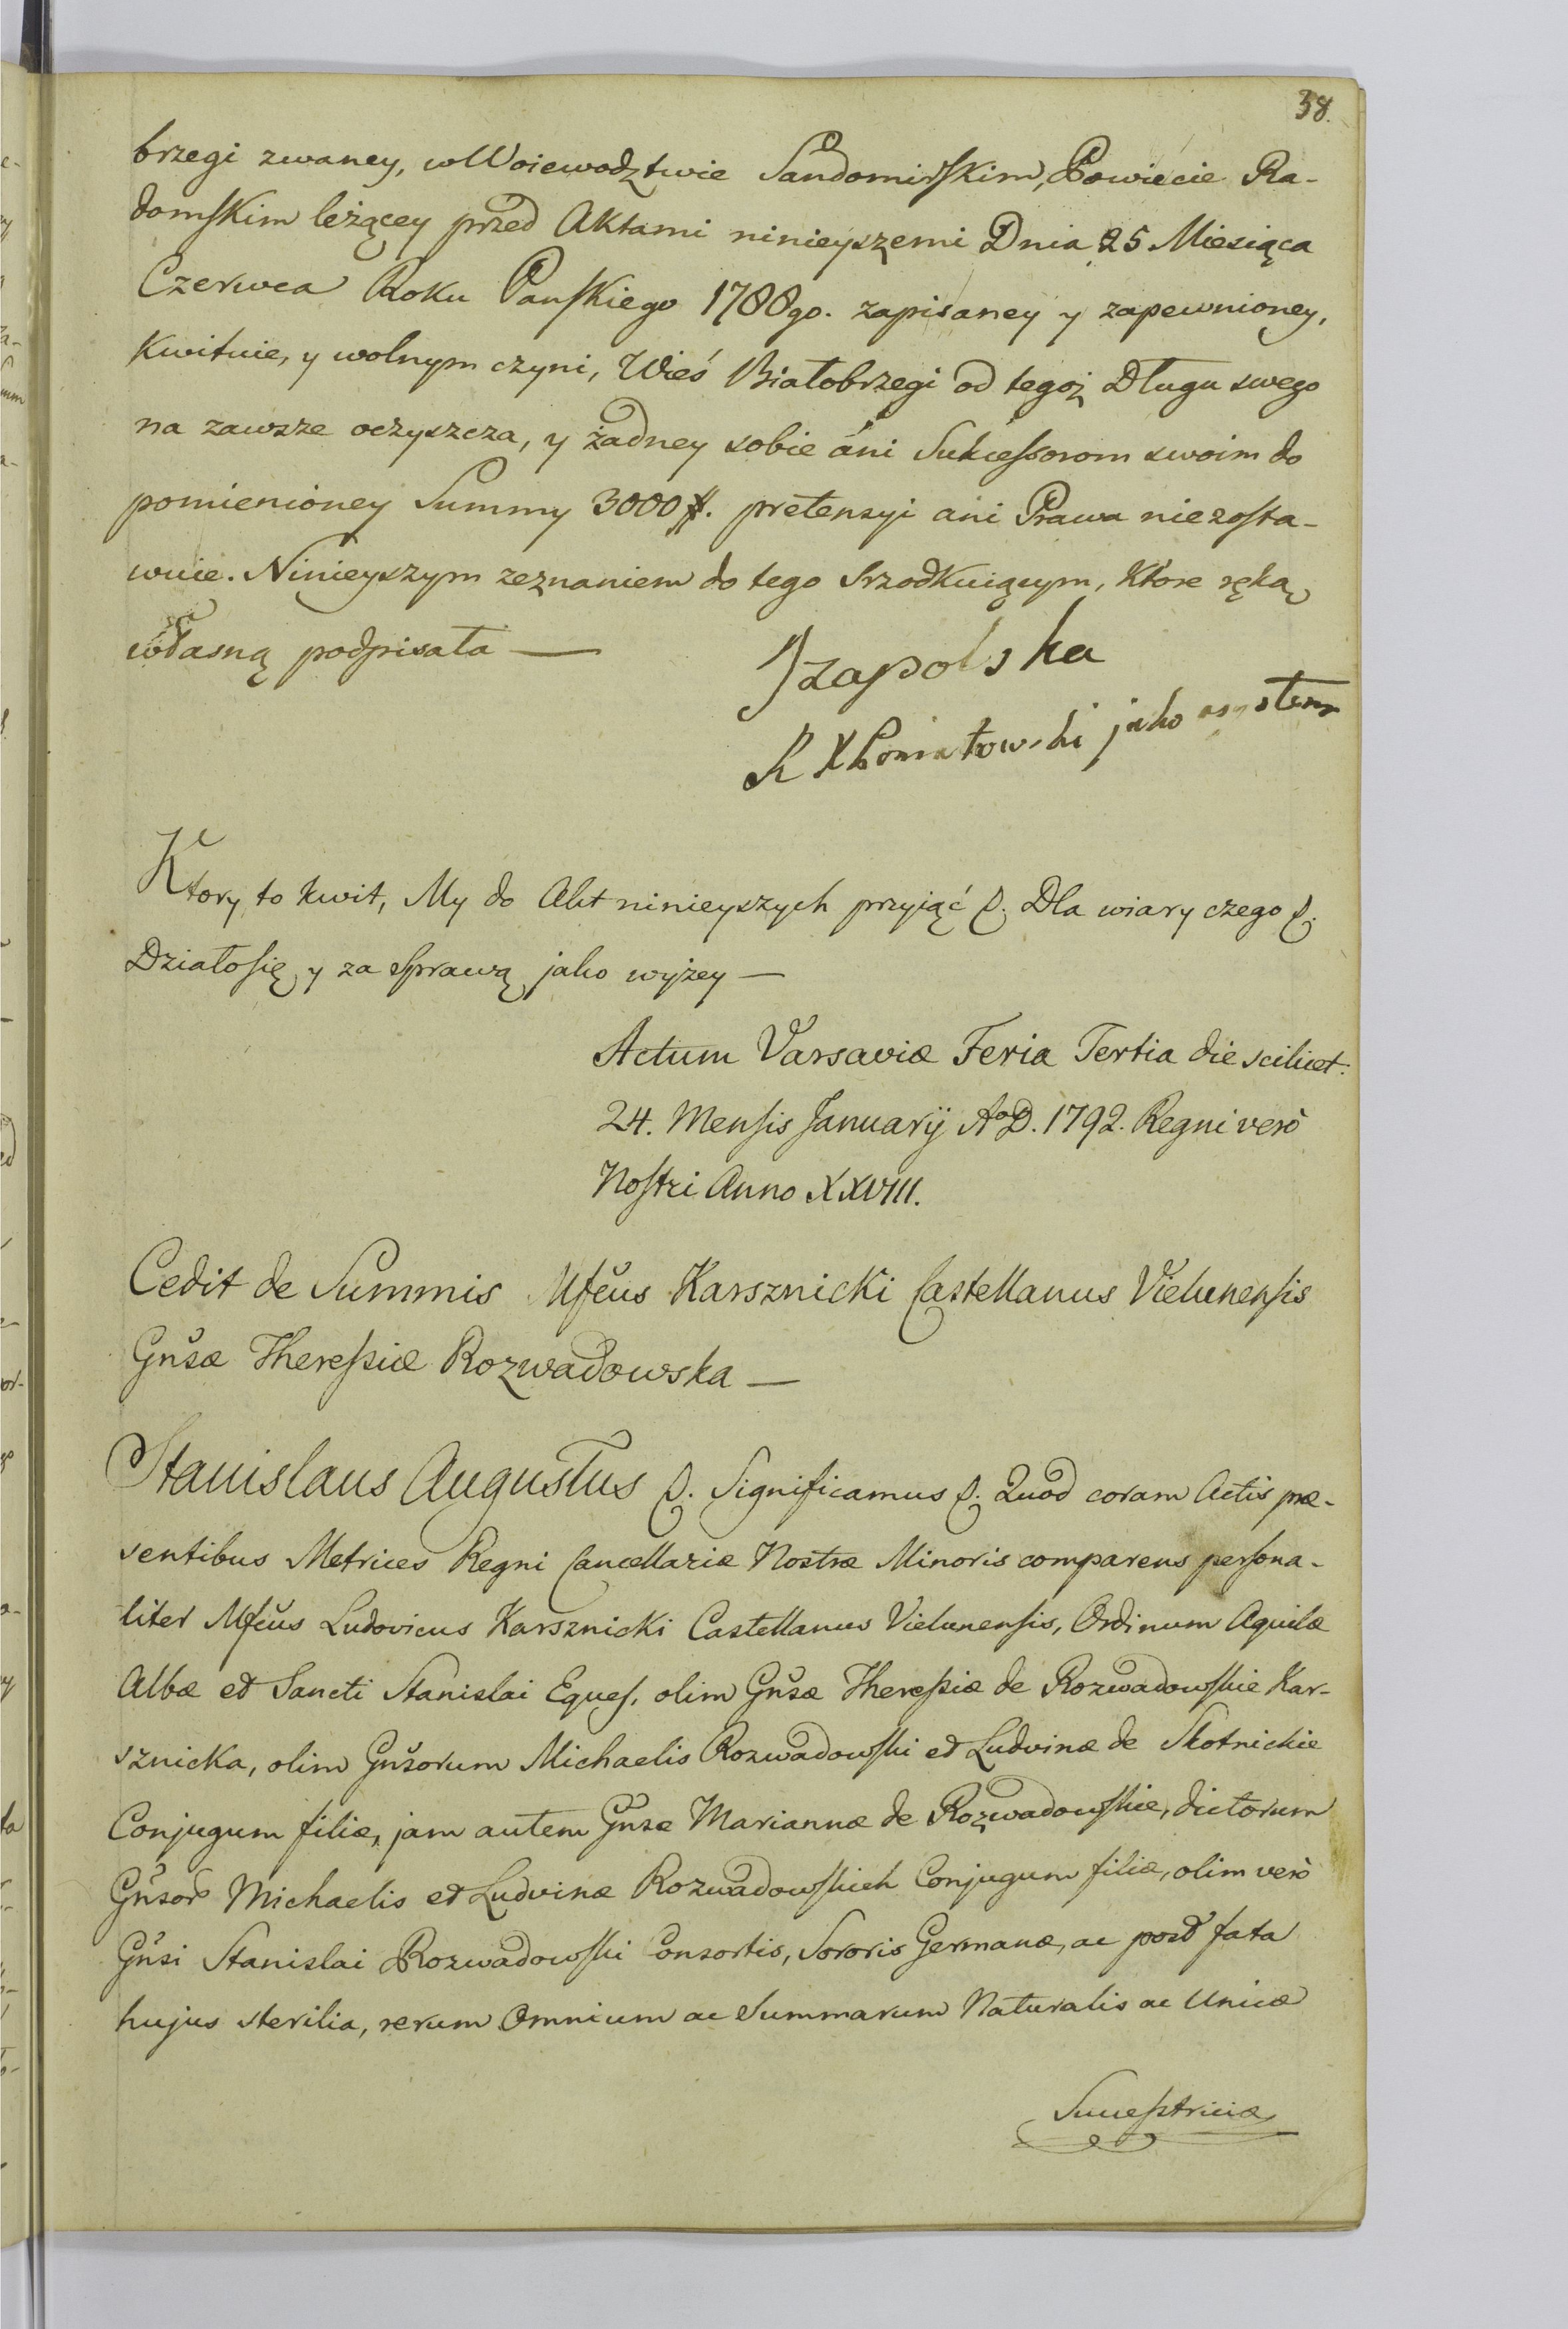 38.
brzegi zwaney, w Woiewodztwie Sandomirskim, Powiecie Ra-
domskim leżącey przed Aktami ninieyszemi Dnia 25 Miesiąca
Czerwca Roku Panskiego 1788go. zapisaney y zapewnioney,
Kwituie, y wolnym czyni, Wieś Białobrzegi od tegoż Długu swego
na zawsze oczyszcza, y żadney sobie áni Sukcessorom swoim do
pomienioney Summy 3000 #. pretensyi ani Prawa niezosta-
wuie. Ninieyszym zeznaniem do tego srzodkuiącym, Ktore ręką
własną podpisała —
Jzapolska
K Xsoniatowski jako asystent
Ktory to kwit, My do Akt ninieyszych przyiąć &. Dla wiary czego &.
Działosię y za Sprawą jako wyżey —
Actum Varsaviæ Feria Tertia die scilicet.
24. Mensis Januarij AoD. 1792. Regni verò
Nostri Anno XXVIII.
Cedit de Summis Mfcus Karsznicki Castellanus Vielunensis
Gnsæ Theressiæ Rozwadowska —
Stanislaus Augustus &. Significamus &. Quod coram Actis præ-
sentibus Metrices Regni Cancellariæ Nostræ Minoris comparens persona-
liter Mfcus Ludovicus Karsznicki Castellanus Vielunensis, Ordinum Aquilæ
Albæ et Sancti Stanislai Eques, olim Gnsæ Theressiæ de Rozwadowskie Kar-
sznicka, olim Gnsorum Michaelis Rozwadowski et Ludvinæ de Skotnickie
Conjugum filiæ, jam autem Gnsæ Mariannæ de Rozwadowskie, dictorum
Gnsor Michaelis et Ludvinæ Rozwadowskich Conjugum filiæ, olim verò
Gnsi Stanislai Rozwadowski Consortis, Sororis Germanæ, ac post fata
hujus sterilia, rerum Omnium ac Summarum Naturalis ac Unicæ
Successtricis